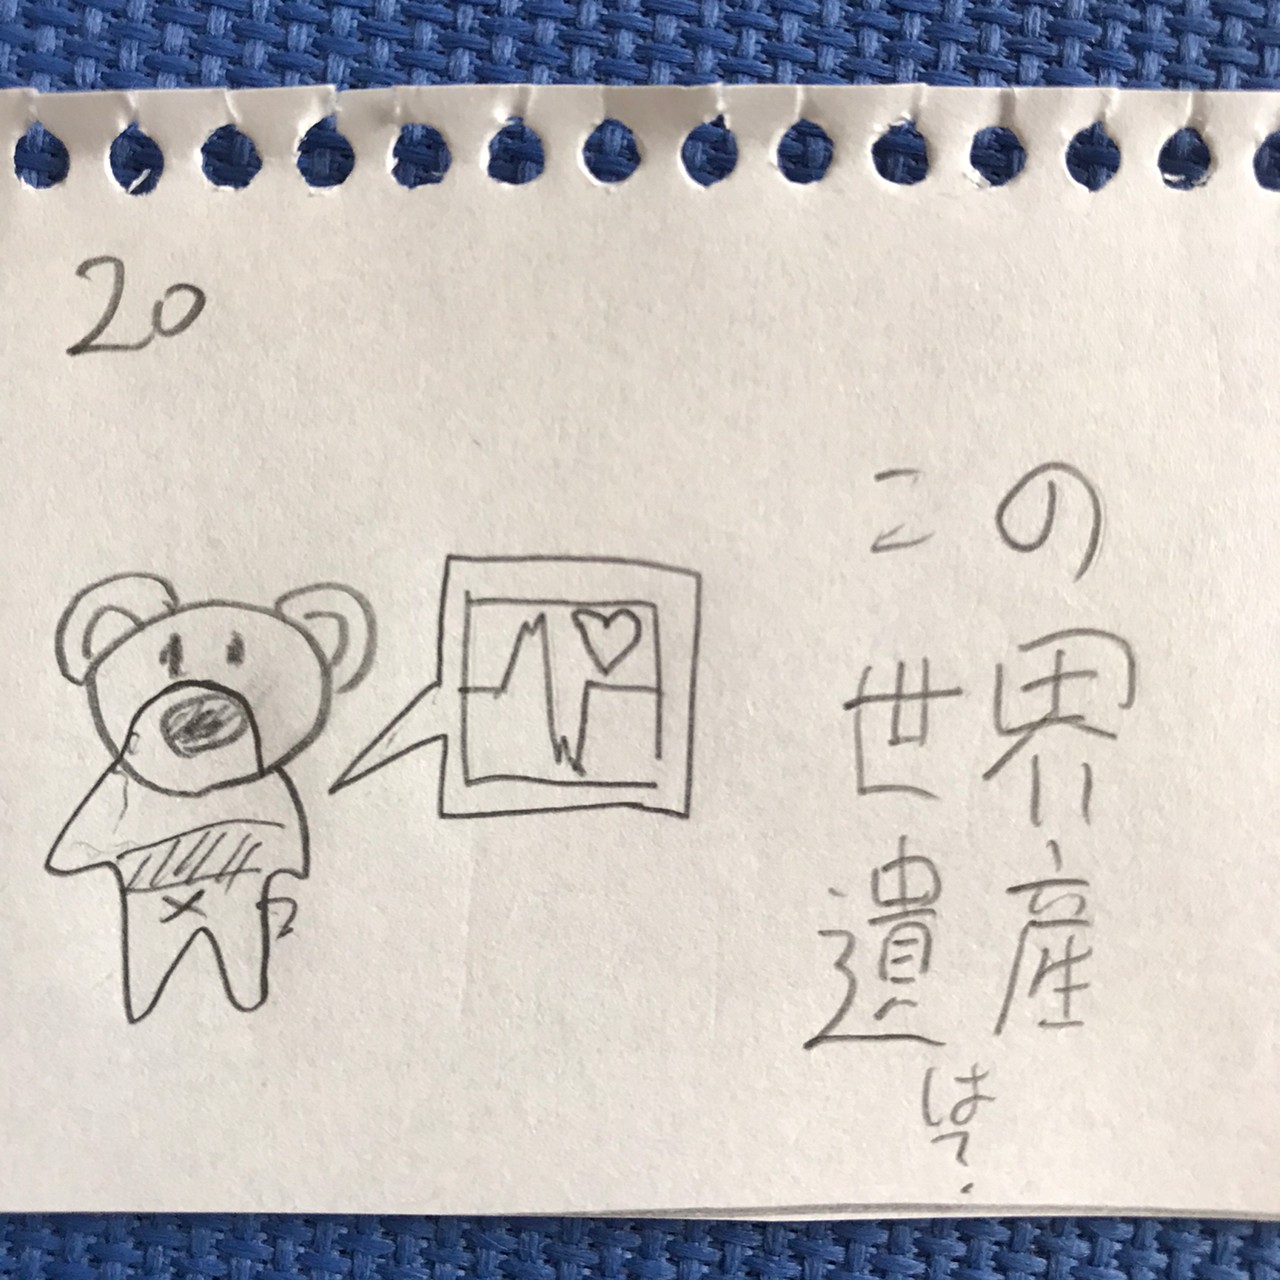 20
この
世界
遺産
は?